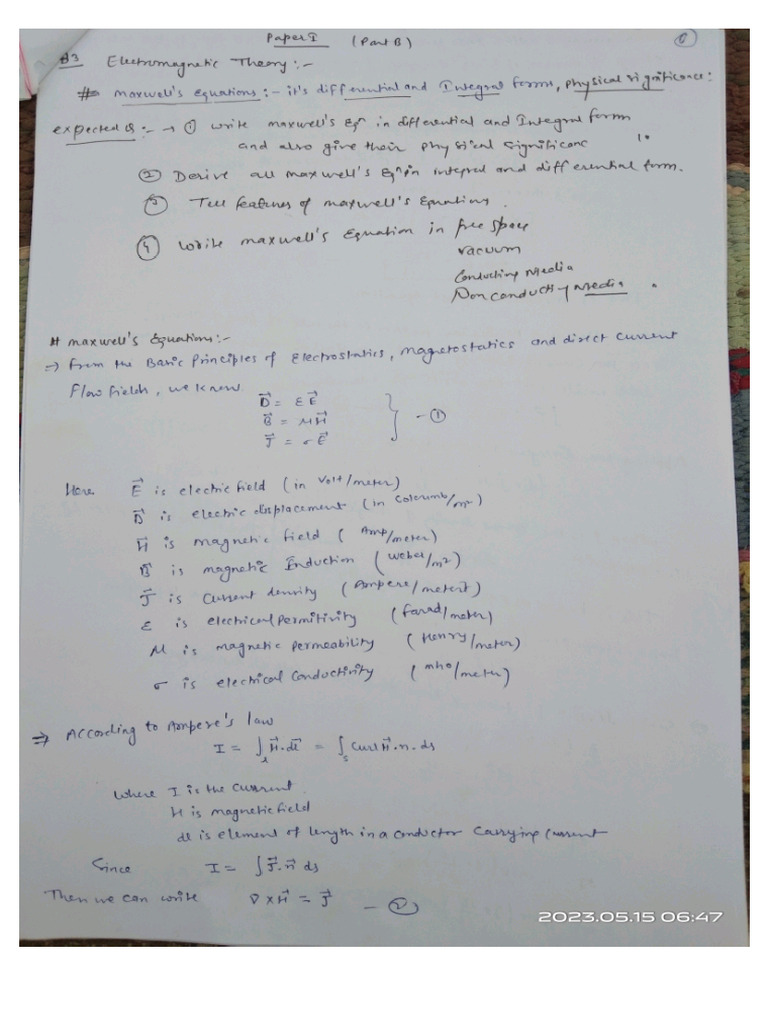 Paper I (Part B) ①
B3 Electromagnetic Theory:-
# Maxwell's equations:- it's differential and Integral forms, physical significance:
expected Q:- → ① Write maxwell's Eqn in differential and Integral form
and also give their physical significanc
② Derive all maxwell's Eqn in integral and differential form.
③ Tell features of maxwell's Equations.
④ Write maxwell's Equation in free space
vacuum
Conducting Media
Non conducting Media.
# maxwell's Equations:-
⇒ From the Basic Principles of Electrostatics, magnetostatics and direct current
Flow fields, we know
D⃗ = ε E⃗
B⃗ = μ H⃗ } - ①
J⃗ = σ E⃗
Here E⃗ is electric field (in Volt/meter)
D⃗ is electric displacement (in Coloumb/m²)
H⃗ is magnetic field (Amp/meter)
B⃗ is magnetic Induction (Weber/m²)
J⃗ is Current density (Ampere/meter²)
ε is electrical Permitivity (Farad/meter)
μ is magnetic Permeability (Henry/meter)
σ is electrical Conductivity (mho/meter)
⇒ According to Ampere's law
I = ∫ₗ H⃗.dl⃗ = ∫ₛ Curl H⃗.n.ds
Where I is the current
H is magnetic field
dl is element of length in a conductor Carrying current
Since I = ∫ J⃗.n⃗ ds
Then we can write ∇×H⃗ = J⃗ - ②
2023.05.15 06:47